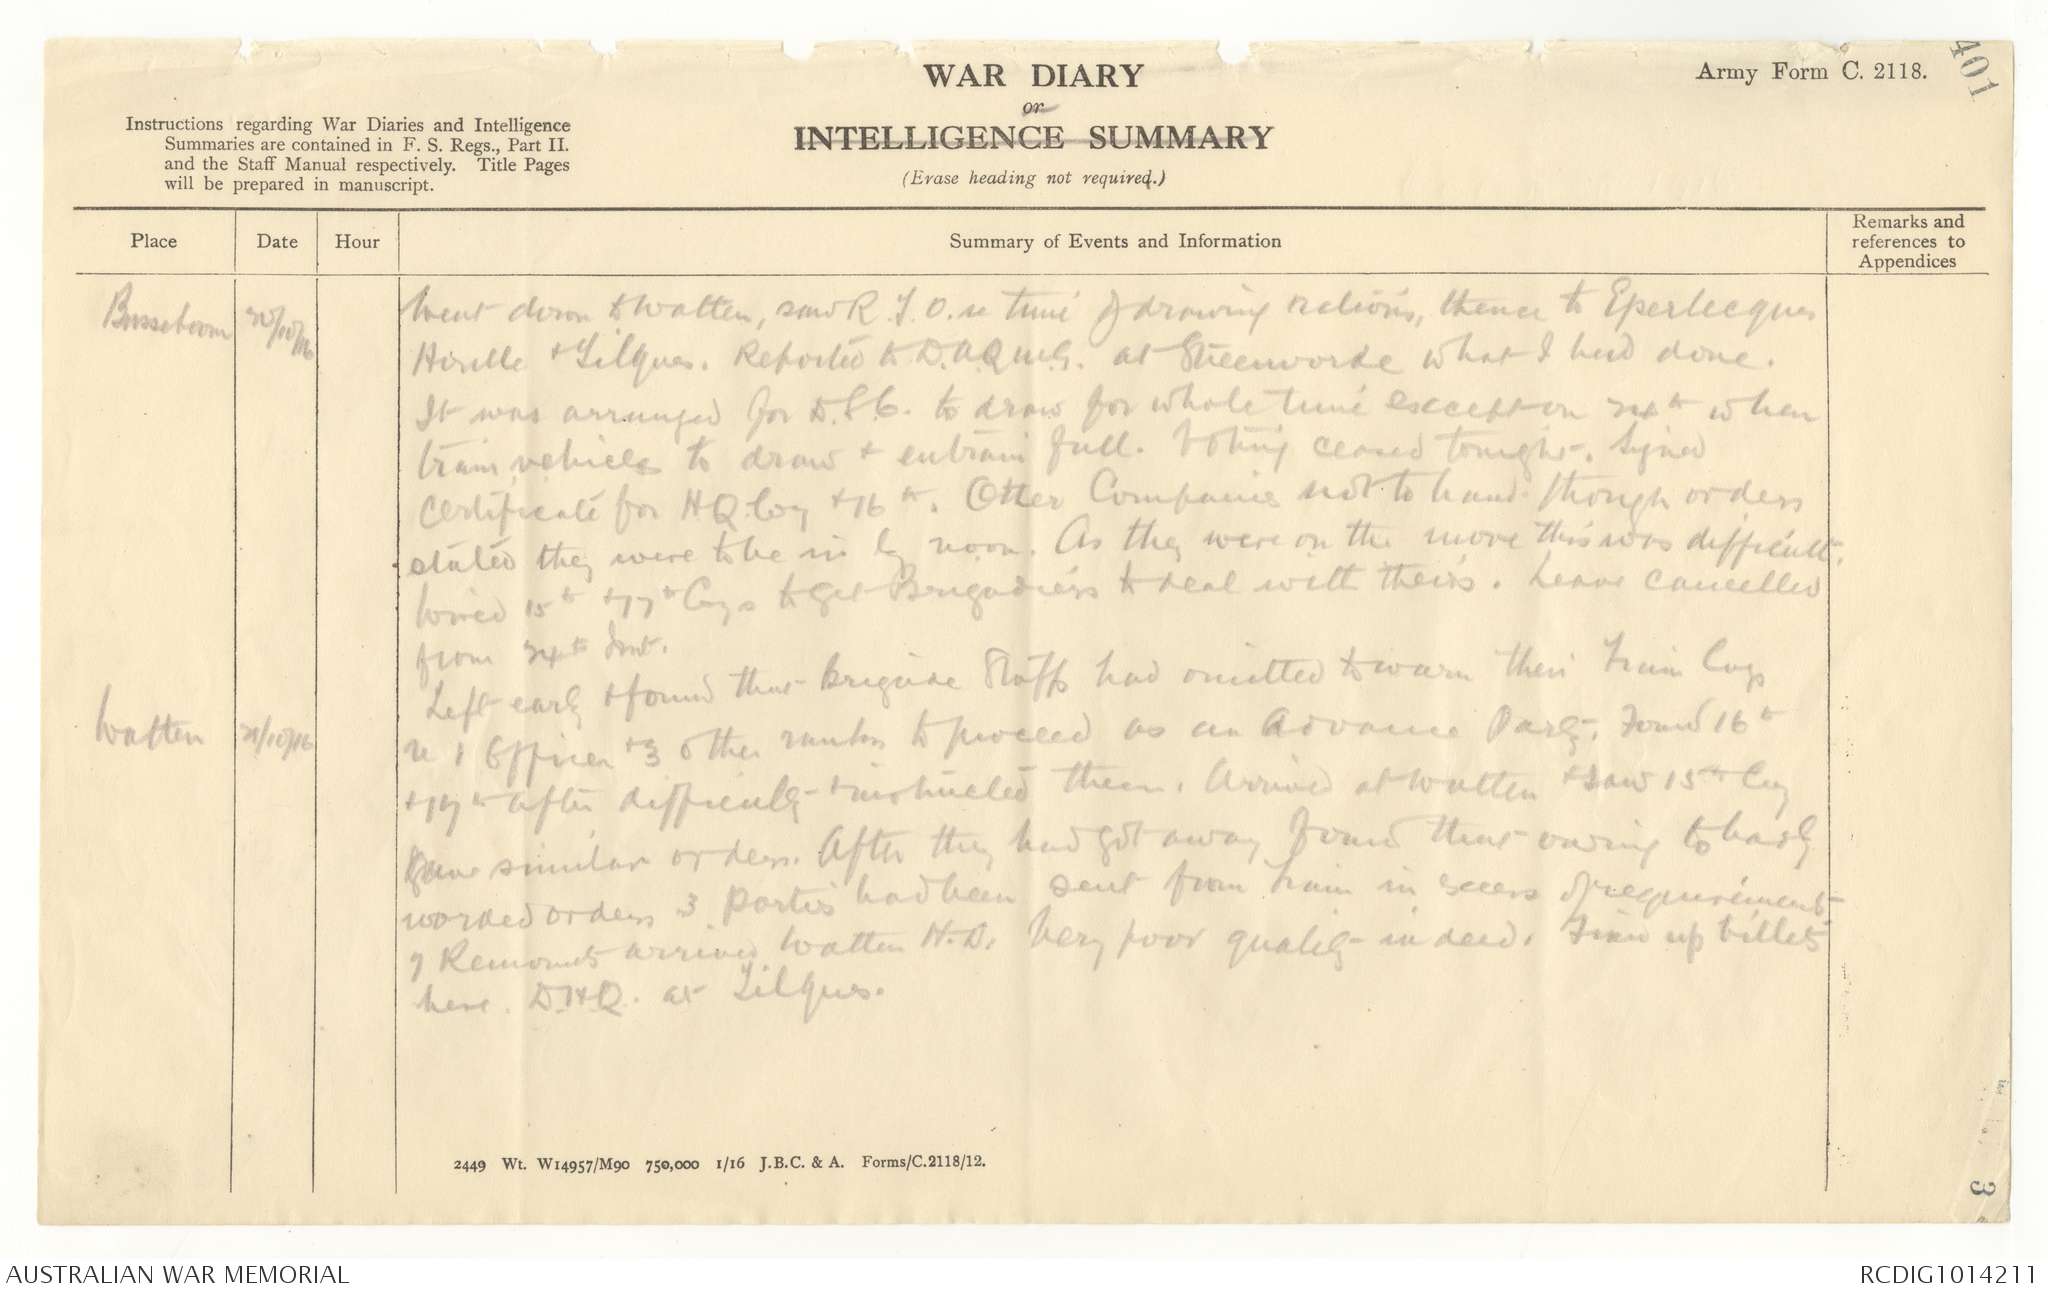 401
Army Form C. 2118.
WAR DIARY
or
INTELLIGENCE SUMMARY
(Erase heading not required.)
Instructions regarding War Diaries and Intelligence
Summaries are contained in F. S. Regs., Part II.
and the Staff Manual respectively. Title Pages
will be prepared in manuscript.
Place
Date
Hour
Summary of Events and Information
Remarks and
references to
Appendices
Busseboom 20/10/16
Went down to Watten, saw R.T.O. re time of drawing rations, thence to Eperlecques
+ Tilques. Reported to D.A.Q.M.G. at Steenvorde what I had done.
It was arranged for D.S.C. to draw for whole time except on 24th when
train vehicles to draw + entrain full. Voting ceased tonight. Signed
certificate for HQ. Coy + 16th. Other Companies not to hand though orders
stated they were to be in by noon. As they were on the move this was difficult.
Wired 15th + 17th Coys to get Brigadiers to deal with theirs. Leave cancelled
from 24th Inst.
Watten 21/10/16
Left early + found that Brigade Staffs had omitted to warn their Train Coys
re 1 Officer + 3 other ranks to proceed as an Advance Party. Found 16th
+ 17th after difficulty + instructed them. Arrived at Watten + saw 15th Coy
Gave similar orders. After they had got away found that owing to badly
worded orders 3 parties had been sent from Train in excess of requirements
9 Remounts arrived Watten H.D. Very poor quality indeed. Fixed up billets
here. D.H.Q. at Tilques.
2449 Wt. W14957/M90 750,000 1/16 J.B.C. & A. Forms/C.2118/12.
3
AUSTRALIAN WAR MEMORIAL
RCDIG1014211